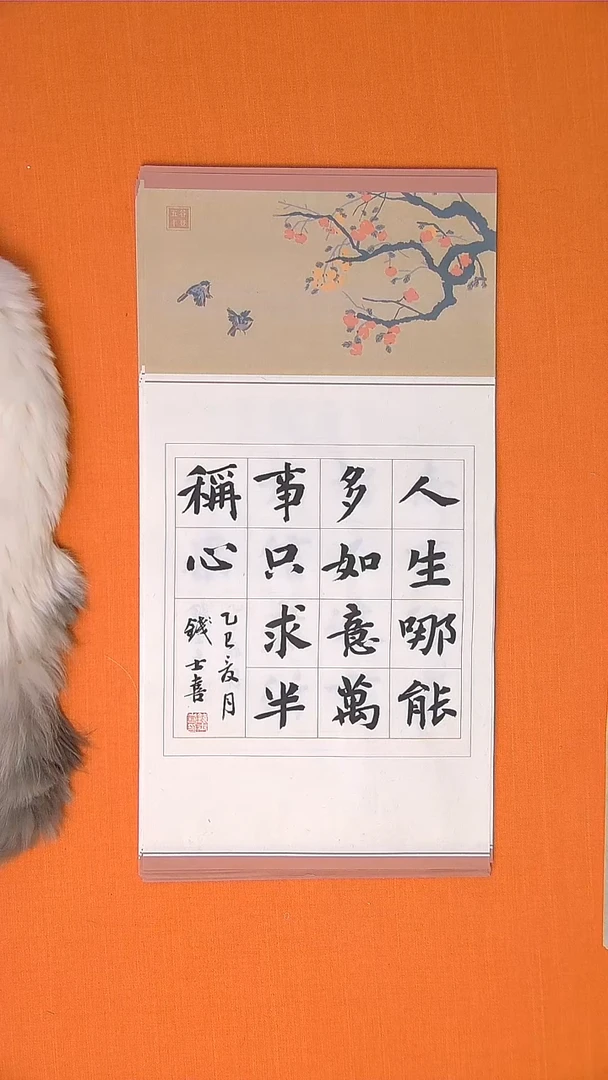 人生哪能
多如意萬
事只求半
稱心
乙巳亥月
錢士喜